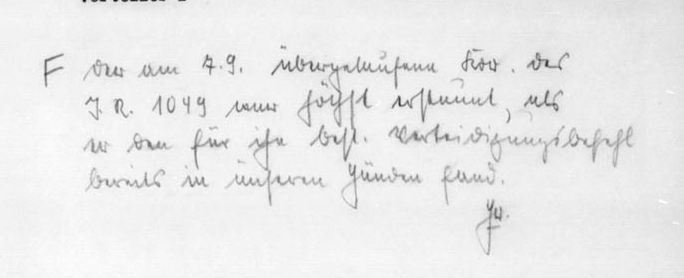 F Der am 7.9. übergelaufene Kdr. des
J.R. 1049 war höchst erstaunt, als
er den für ihn best. Verteidigungsbefehl
bereits in unseren Händen fand.